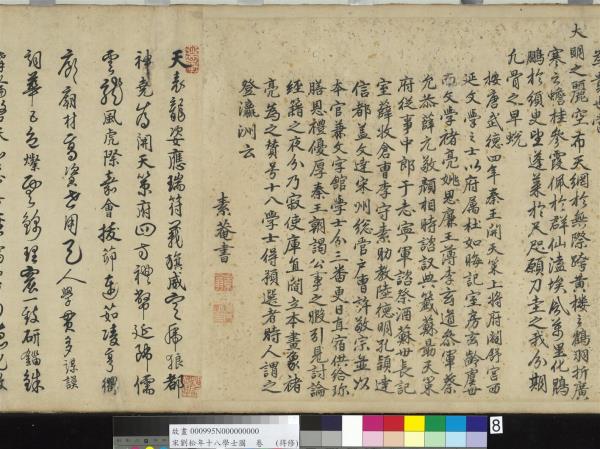 大明之麗空布天網於無際跨黃樓之鶴羽折廣
寒之蟾桂參霞佩於群仙溘埃風萬里化鵾
鵬於須臾望蓬萊於尺咫願刀圭之我分期
九骨之早蛻
按唐武德四年秦王開天策上將府闢舘宮西
延文學之士以府属杜如晦記室房玄齡虞世
南文學褚亮姚思廉主簿李玄道參軍蔡
允恭薛元敬顏相時諮議典籤蘇勗天策
府從事中郎于志寧軍諮祭酒蘇世長記
室薛收倉曹李守素助教陸德明孔穎達
信都蓋文達宋州總官户曹許敬宗並以
本官兼文字館學士分三番更日直宿供給珍
膳恩禮優厚秦王朝謁公事之暇引見討論
經籍之夜分乃寂使庫直閻立本畫象褚
亮為之賛号十八學士得預選者時人謂之
登瀛洲云
素菴書
天表龍姿應瑞符義旗威定虎狼都
神堯為開天策府四方禮幣延師儒
雲龍風虎際嘉會拔茆連茹凌亨衢
廊廟材高資世用天人學貫多謀謨
詞華五色燦雲錦理一致研錙銖
故畫 000995N000000000
宋劉松年十八學士圖 卷 (得修)
8